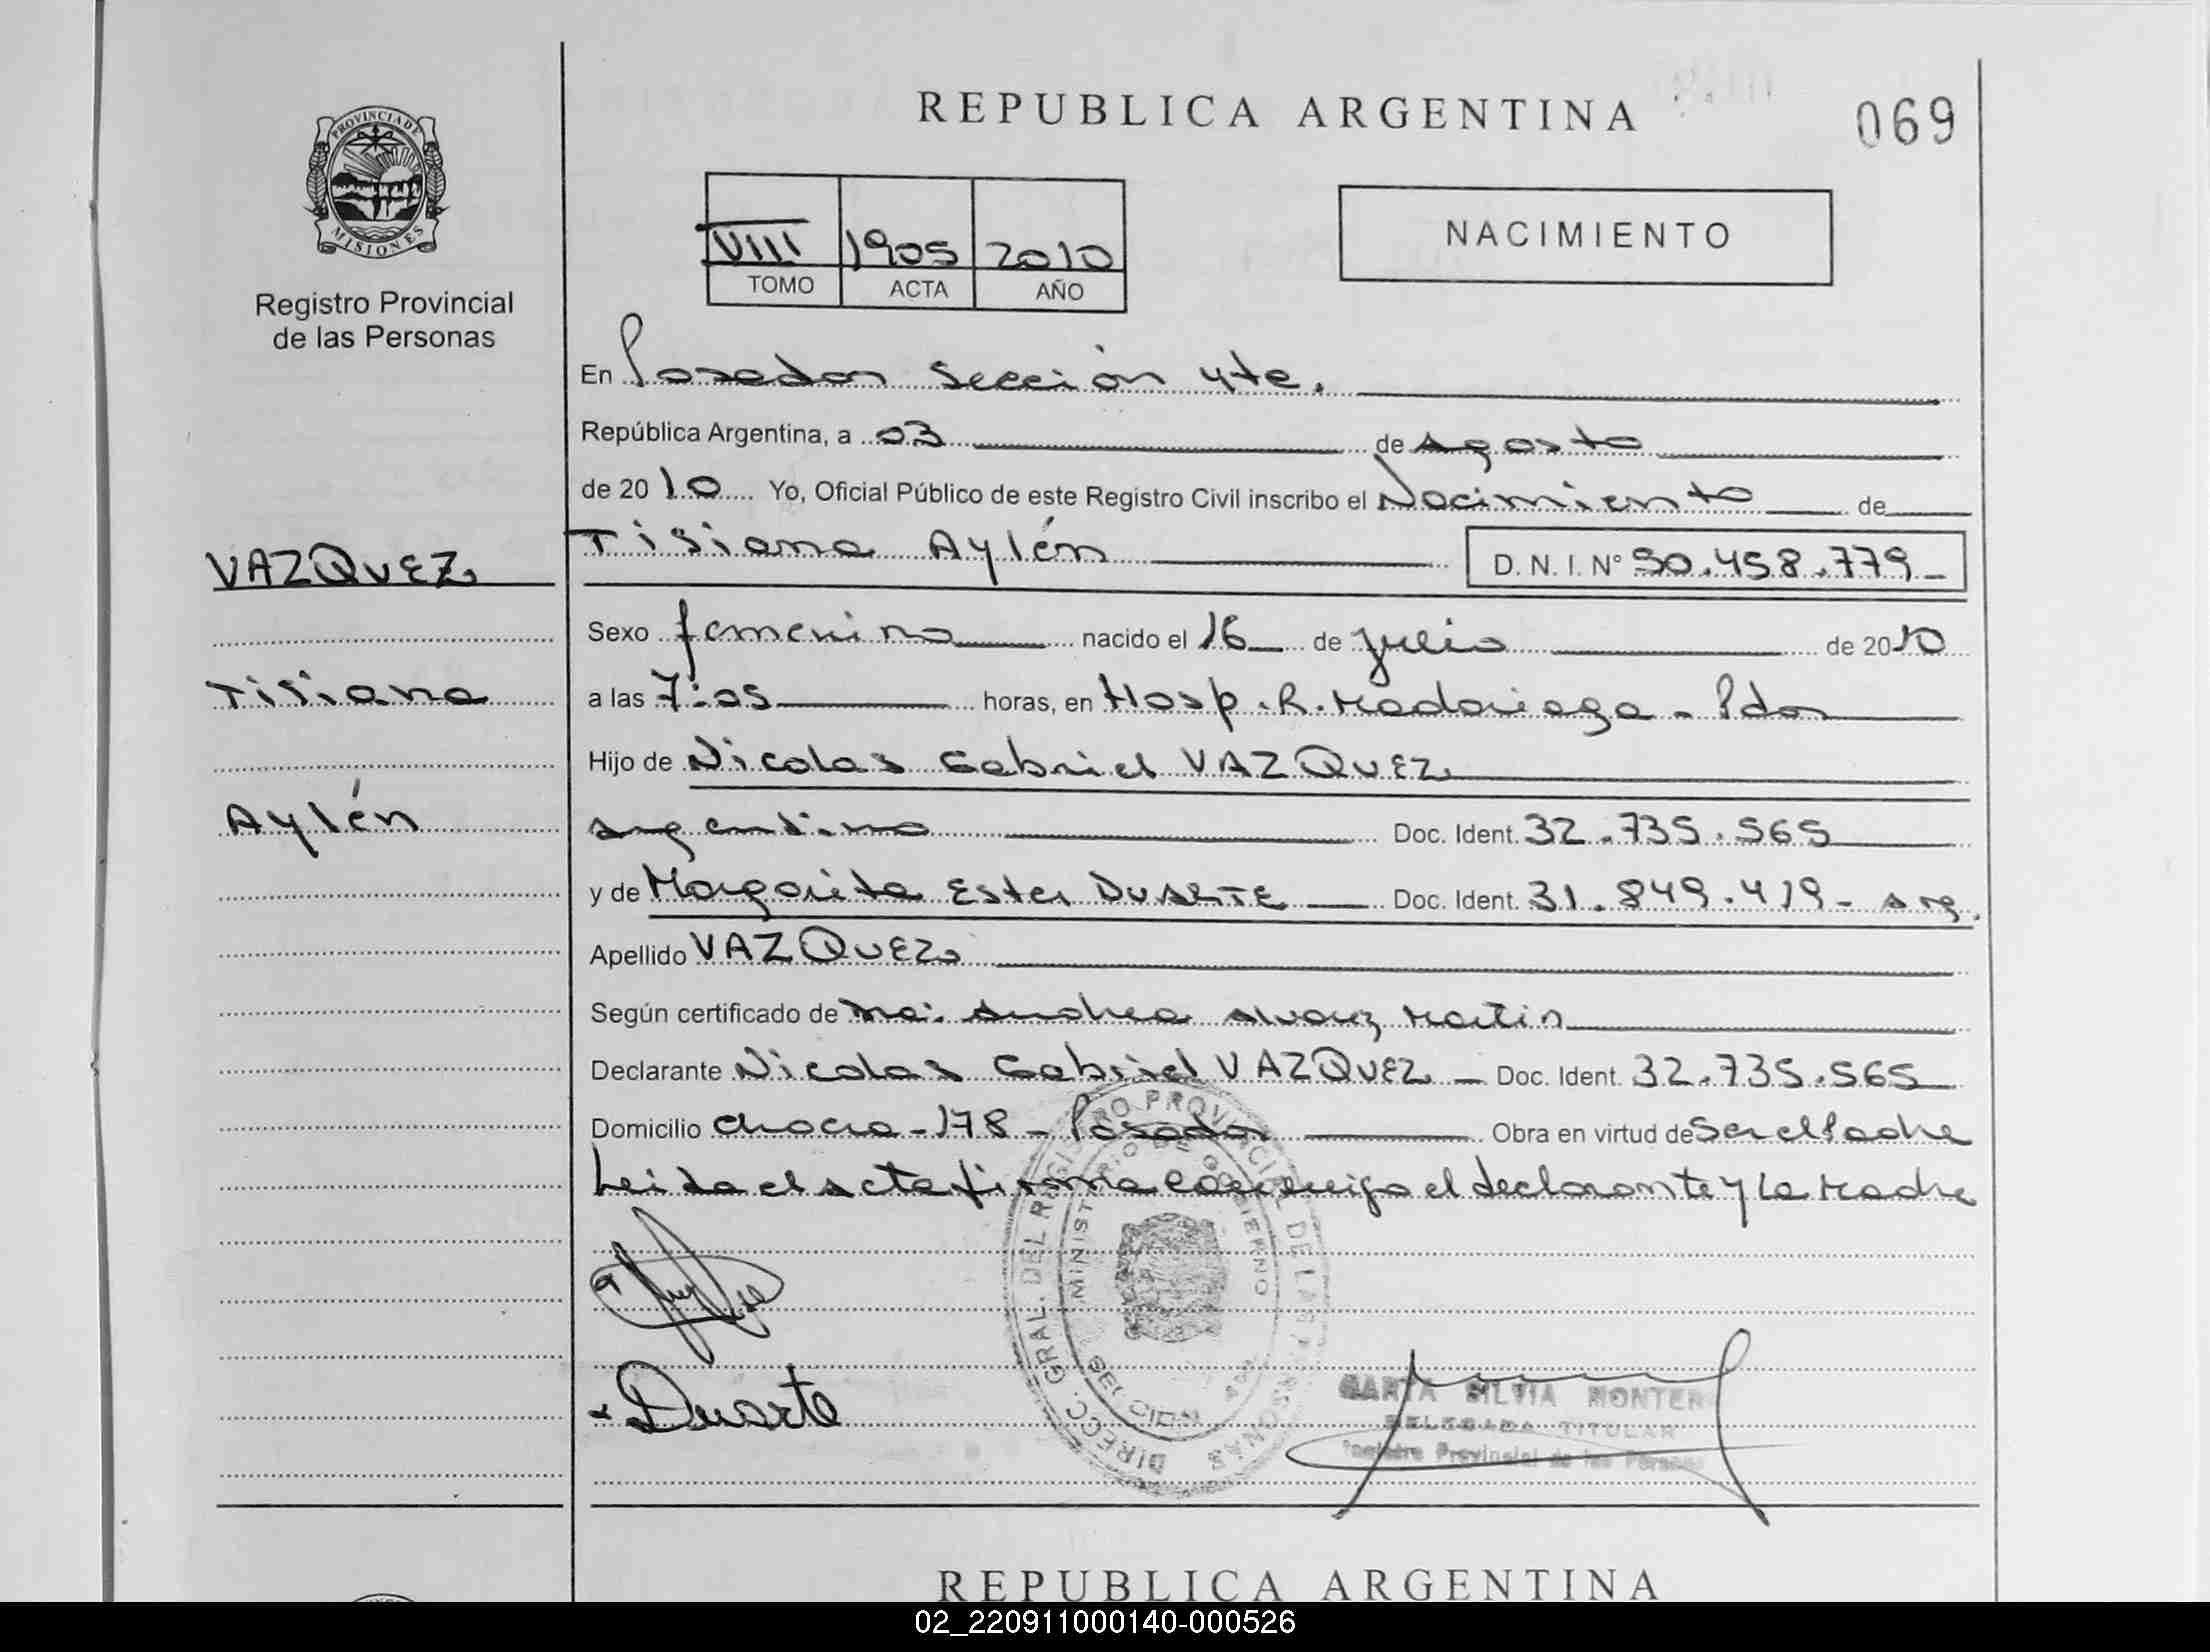 REPUBLICA ARGENTINA
069
PROVINCIA DE
MISIONES
Registro Provincial
de las Personas
VIII 1905 2010
TOMO ACTA AÑO
NACIMIENTO
En Posadas Sección 4ta.
República Argentina, a 03 de Agosto
de 2010 Yo, Oficial Público de este Registro Civil inscribo el Nacimiento de
Tisiana Aylén D. N. I. Nº 50.458.779-
VAZQUEZ
Tisiana
Aylén
Sexo femenino nacido el 16 de julio de 2010
a las 7:05 horas, en Hosp. R. Madariaga - Pdas
Hijo de Nicolas Gabriel VAZQUEZ
argentino Doc. Ident. 32.735.565
y de Margarita Ester DUARTE Doc. Ident. 31.849.419- arg.
Apellido VAZQUEZ
Según certificado de Andrea Alvarez Martin
Declarante Nicolas Gabriel VAZQUEZ - Doc. Ident. 32.735.565
Domicilio Chacra - 178 - Posadas Obra en virtud de Ser el Padre
Leida el acta firma conmigo el declarante y La Madre
DIRECC. GRAL. DEL REGISTRO PROVINCIAL DE LAS PERSONAS
MINISTERIO DE GOBIERNO
Duarte
SILVIA MONTER
DELEGADA TITULAR
Registro Provincial de las Personas
REPUBLICA ARGENTINA
02_220911000140-000526